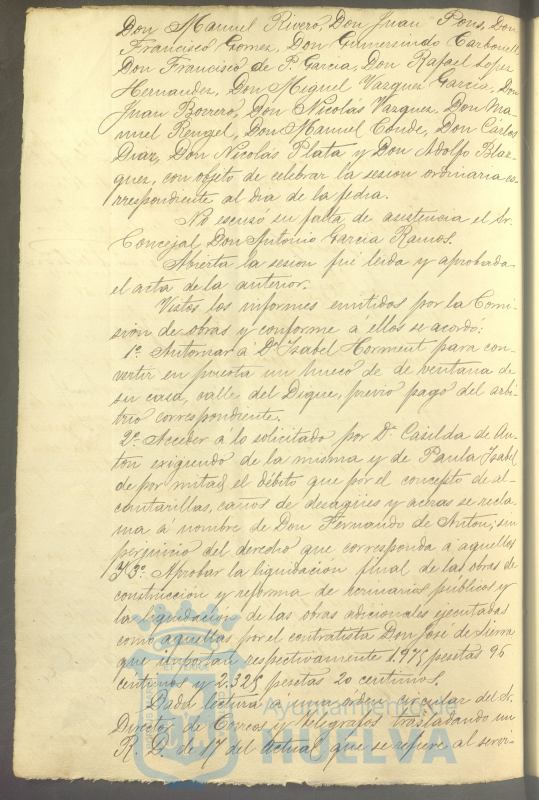 Don Manuel Rivero, Don Juan Pons, Don
Francisco Gomez, Don Gumersindo Carbonell
Don Francisco de P. Garcia, Don Rafael Lopez
Hernandez, Don Miguel Vazquez Garcia, Don
Juan Borrero, Don Nicolás Vazquez, Don Ma-
nuel Rengel, Don Manuel Conde, Don Cárlos
Diaz, Don Nicolás Plata y Don Adolfo Blaz-
quez, con objeto de celebrar la sesion ordinaria co-
rrespondiente al dia de la fecha.
No escusó su falta de asistencia el Sr.
Concejal Don Antonio Garcia Ramos.
Abierta la sesion fué leida y aprobada
el acta de la anterior.
Vistos los informes emitidos por la Comi-
sión de obras y conforme á ellos se acordó:
1º Autorizar á Dª Isabel Horment para con-
vertir en puerta un hueco de de ventana de
su casa, calle del Dique, previo pago del arbi-
trio correspondiente.
2º Acceder á lo solicitado por Dª Casilda de An-
tón exigiendo de la misma y de Paula Isabel
de por mitad el débito que por el concepto de al-
cantarillas, caños de desagües y aceras se recla-
ma á nombre de Don Fernando de Anton, sin
perjuicio del derecho que corresponda á aquellos
Y 3º Aprobar la liquidacion final de las obras de
construcción y reforma de urinarios públicos y
la liquidacion de las obras adicionales ejecutadas
como aquellas por el contratista Don José de Sierra
que importan respectivamente 1.975 pesetas 96
céntimos y 2.325 pesetas 20 centimos.
Dada lectura á una órden circular del Sr.
Director de Correos y Telégrafos trasladando un
R. D. de 17 del actual que se refiere al servi-
Ayuntamiento de
HUELVA